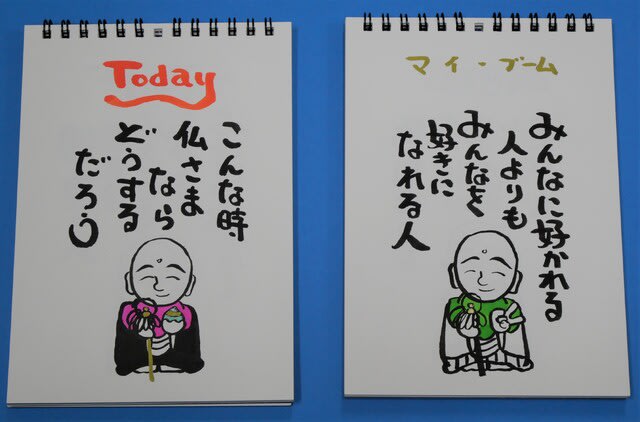 Today
こんな時
仏さま
なら
どうする
だろう
マイ・ブーム
みんなに好かれる
人よりも
みんなを
好きに
なれる人